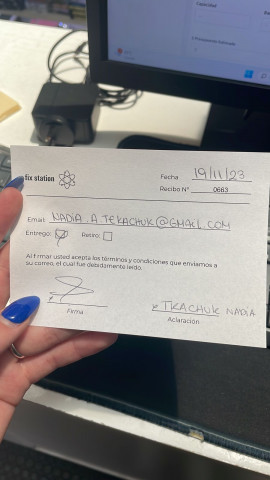 fix station
Fecha 19/11/23
Recibo N° 0663
Email: NADIA.A.TEKACHUK@GMAIL.COM
Entrego: Retiro:
Al firmar usted acepta los términos y condiciones que enviamos a
su correo, el cual fue debidamente leido.
Firma
TKACHUK NADIA
Aclaración